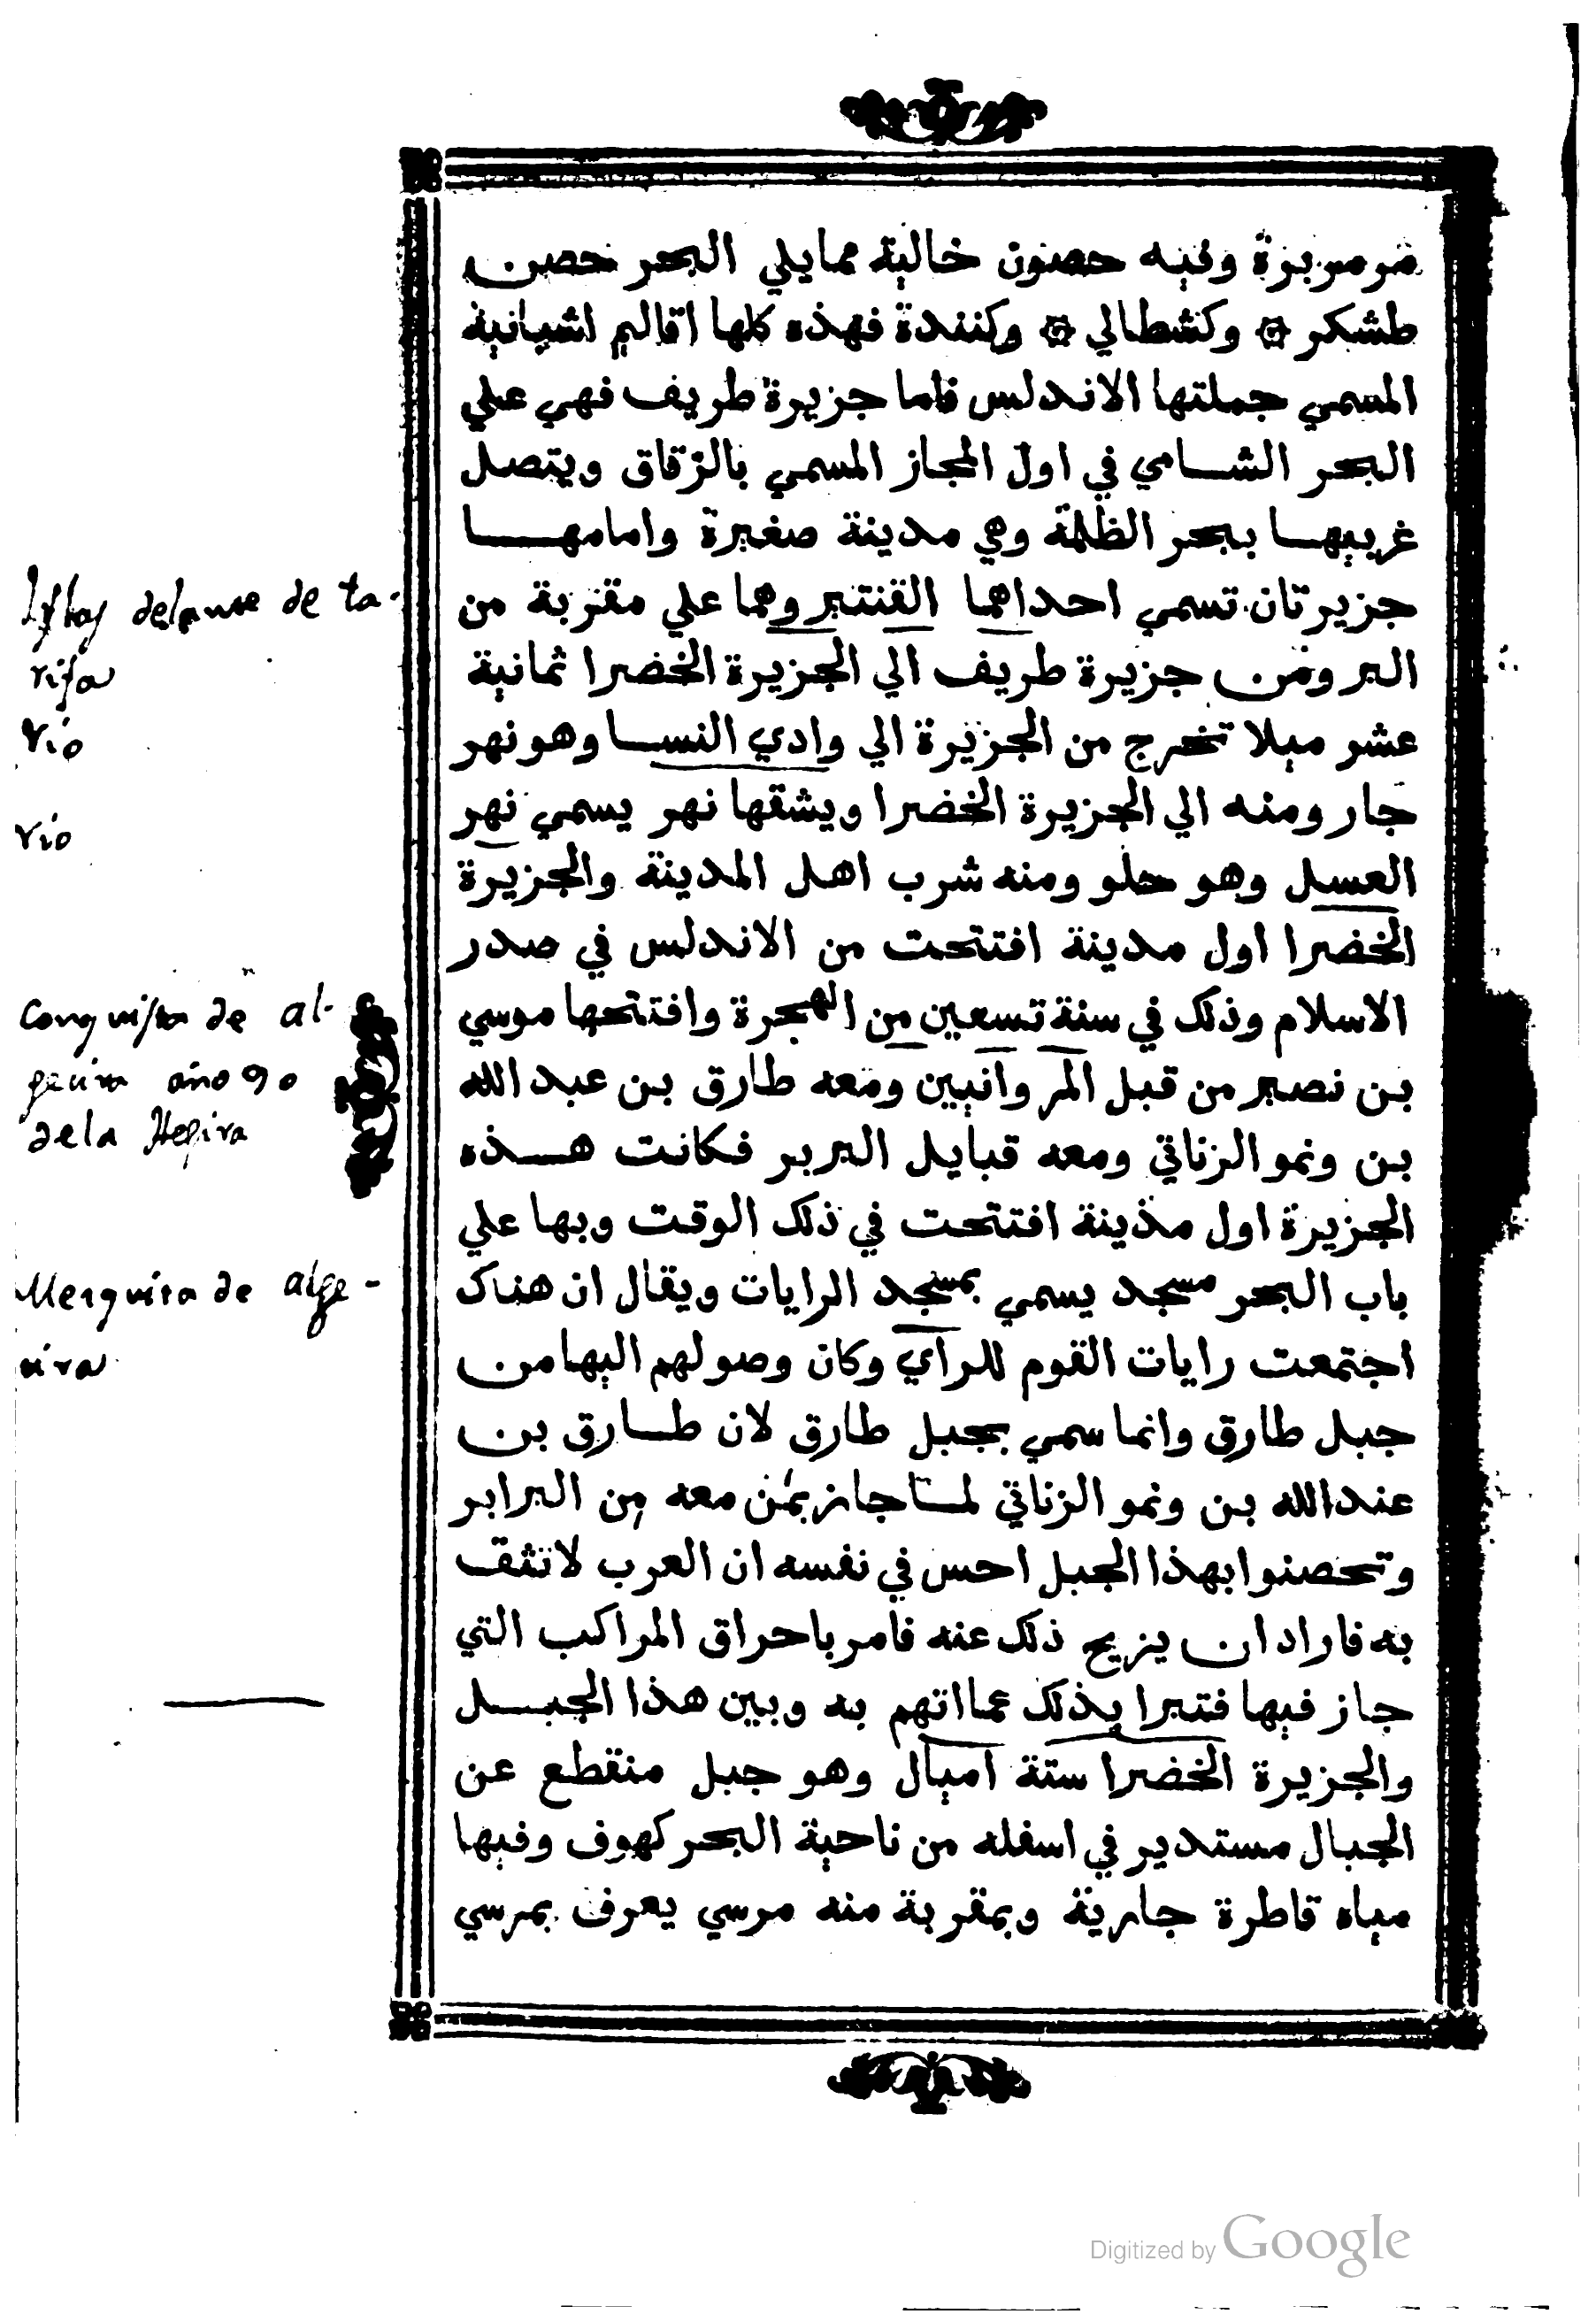 مرمريرة وفيه حصون خالية مما يلي البحر حصن
طشكر ۞ وكشطالي ۞ وكنندة فهذه كلها اقاليم اشبانية
المسمي جملتها الاندلس فاما جزيرة طريف فهي علي
البحر الشامي في اول المجاز المسمي بالزقاق ويتصل
غربيها ببحر الظلمة وهي مدينة صغيرة وامامها
جزيرتان تسمي احداهما القنتير وهما علي مقربة من
البر ومن جزيرة طريف الي الجزيرة الخضرا ثمانية
عشر ميلا تخرج من الجزيرة الي وادي النسا وهو نهر
جار ومنه الي الجزيرة الخضرا ويشقها نهر يسمي نهر
العسل وهو حلو ومنه شرب اهل المدينة والجزيرة
الخضرا اول مدينة افتتحت من الاندلس في صدر
الاسلام وذلك في سنة تسعين من الهجرة وافتتحها موسي
بن نصير من قبل المروانيين ومعه طارق بن عبد الله
بن ونمو الزناتي ومعه قبايل البربر فكانت هذه
الجزيرة اول مدينة افتتحت في ذلك الوقت وبها علي
باب البحر مسجد يسمي بمسجد الرايات ويقال ان هناك
اجتمعت رايات القوم للراي وكان وصولهم اليها من
جبل طارق وانما سمي بجبل طارق لان طارق بن
عبد الله بن ونمو الزناتي لما جاز بمن معه من البرابر
وتحصنوا بهذا الجبل احس في نفسه ان العرب لا تثق
به فاراد ان يزيح ذلك عنه فامر باحراق المراكب التي
جاز فيها فتبرا بذلك عما اتهم به وبين هذا الجبل
والجزيرة الخضرا ستة اميال وهو جبل منقطع عن
الجبال مستدير في اسفله من ناحية البحر كهوف وفيها
مياه قاطرة جارية وبمقربة منه مرسي يعرف بمرسي
Islas delante de ta-
rifa
rio
rio
Conquista de al-
gecira año 90
de la Hegira
Mezquita de alge-
cira
Digitized by Google